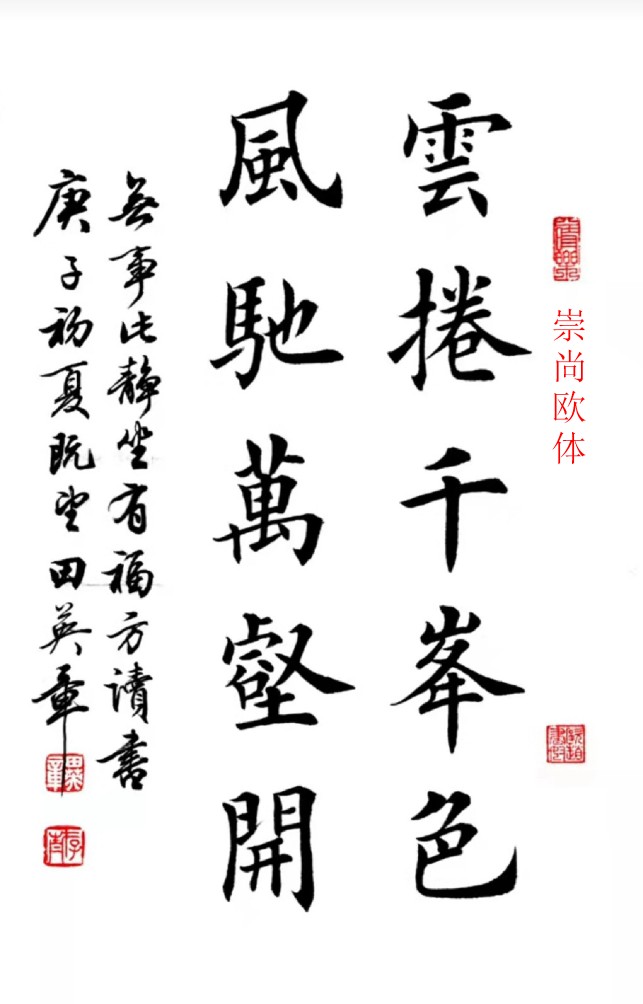 崇尚欧体
雲捲千峯色
風馳萬壑開
無事此靜坐有福方讀書
庚子初夏既望田英章